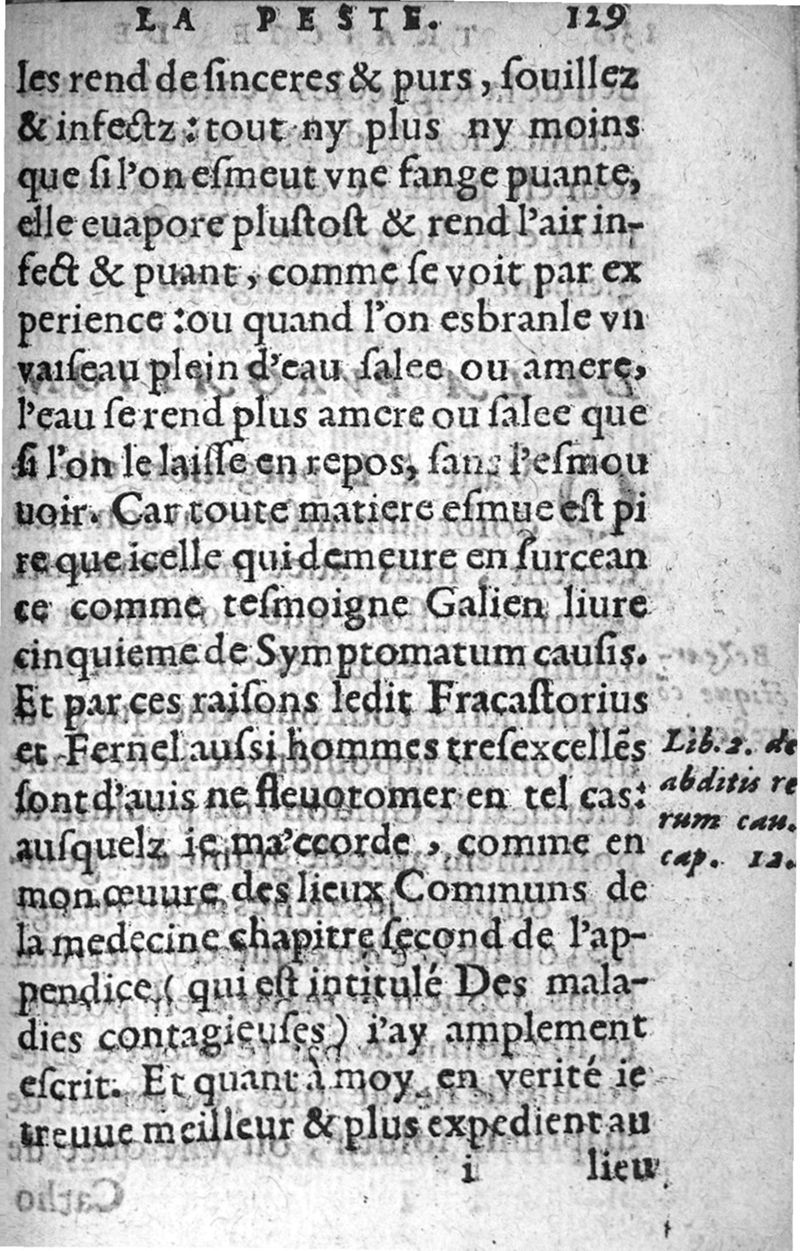 LA PESTE. 129
les rend de ſinceres & purs, ſouillez
& infectz: tout ny plus ny moins
que ſi l'on eſmeut vne fange puante,
elle euapore pluſtoſt & rend l'air in-
fect & puant, comme ſe voit par ex
perience: ou quand l'on esbranle vn
vaiſeau plein d'eau ſalee ou amere,
l'eau ſe rend plus amere ou ſalee que
ſi l'on le laiſſe en repos, ſans l'eſmou
uoir. Car toute matiere eſmue eſt pi
re que icelle qui demeure en ſurcean
ce comme teſmoigne Galien liure
cinquieme de Symptomatum cauſis.
Et par ces raiſons ledit Fracaſtorius
et Fernel auſsi hommes treſexcellẽs
ſont d'auis ne fleuotomer en tel cas:
auſquelz ie ma'ccorde, comme en
mon œuure des lieux Communs de
la medecine chapitre ſecond de l'ap-
pendice, ( qui eſt intitulé Des mala-
dies contagieuſes) i'ay amplement
eſcrit. Et quant à moy en verité ie
treuue meilleur & plus expedient au
i lieu
Lib. 2. de
abditis re
rum cau.
cap. 12.